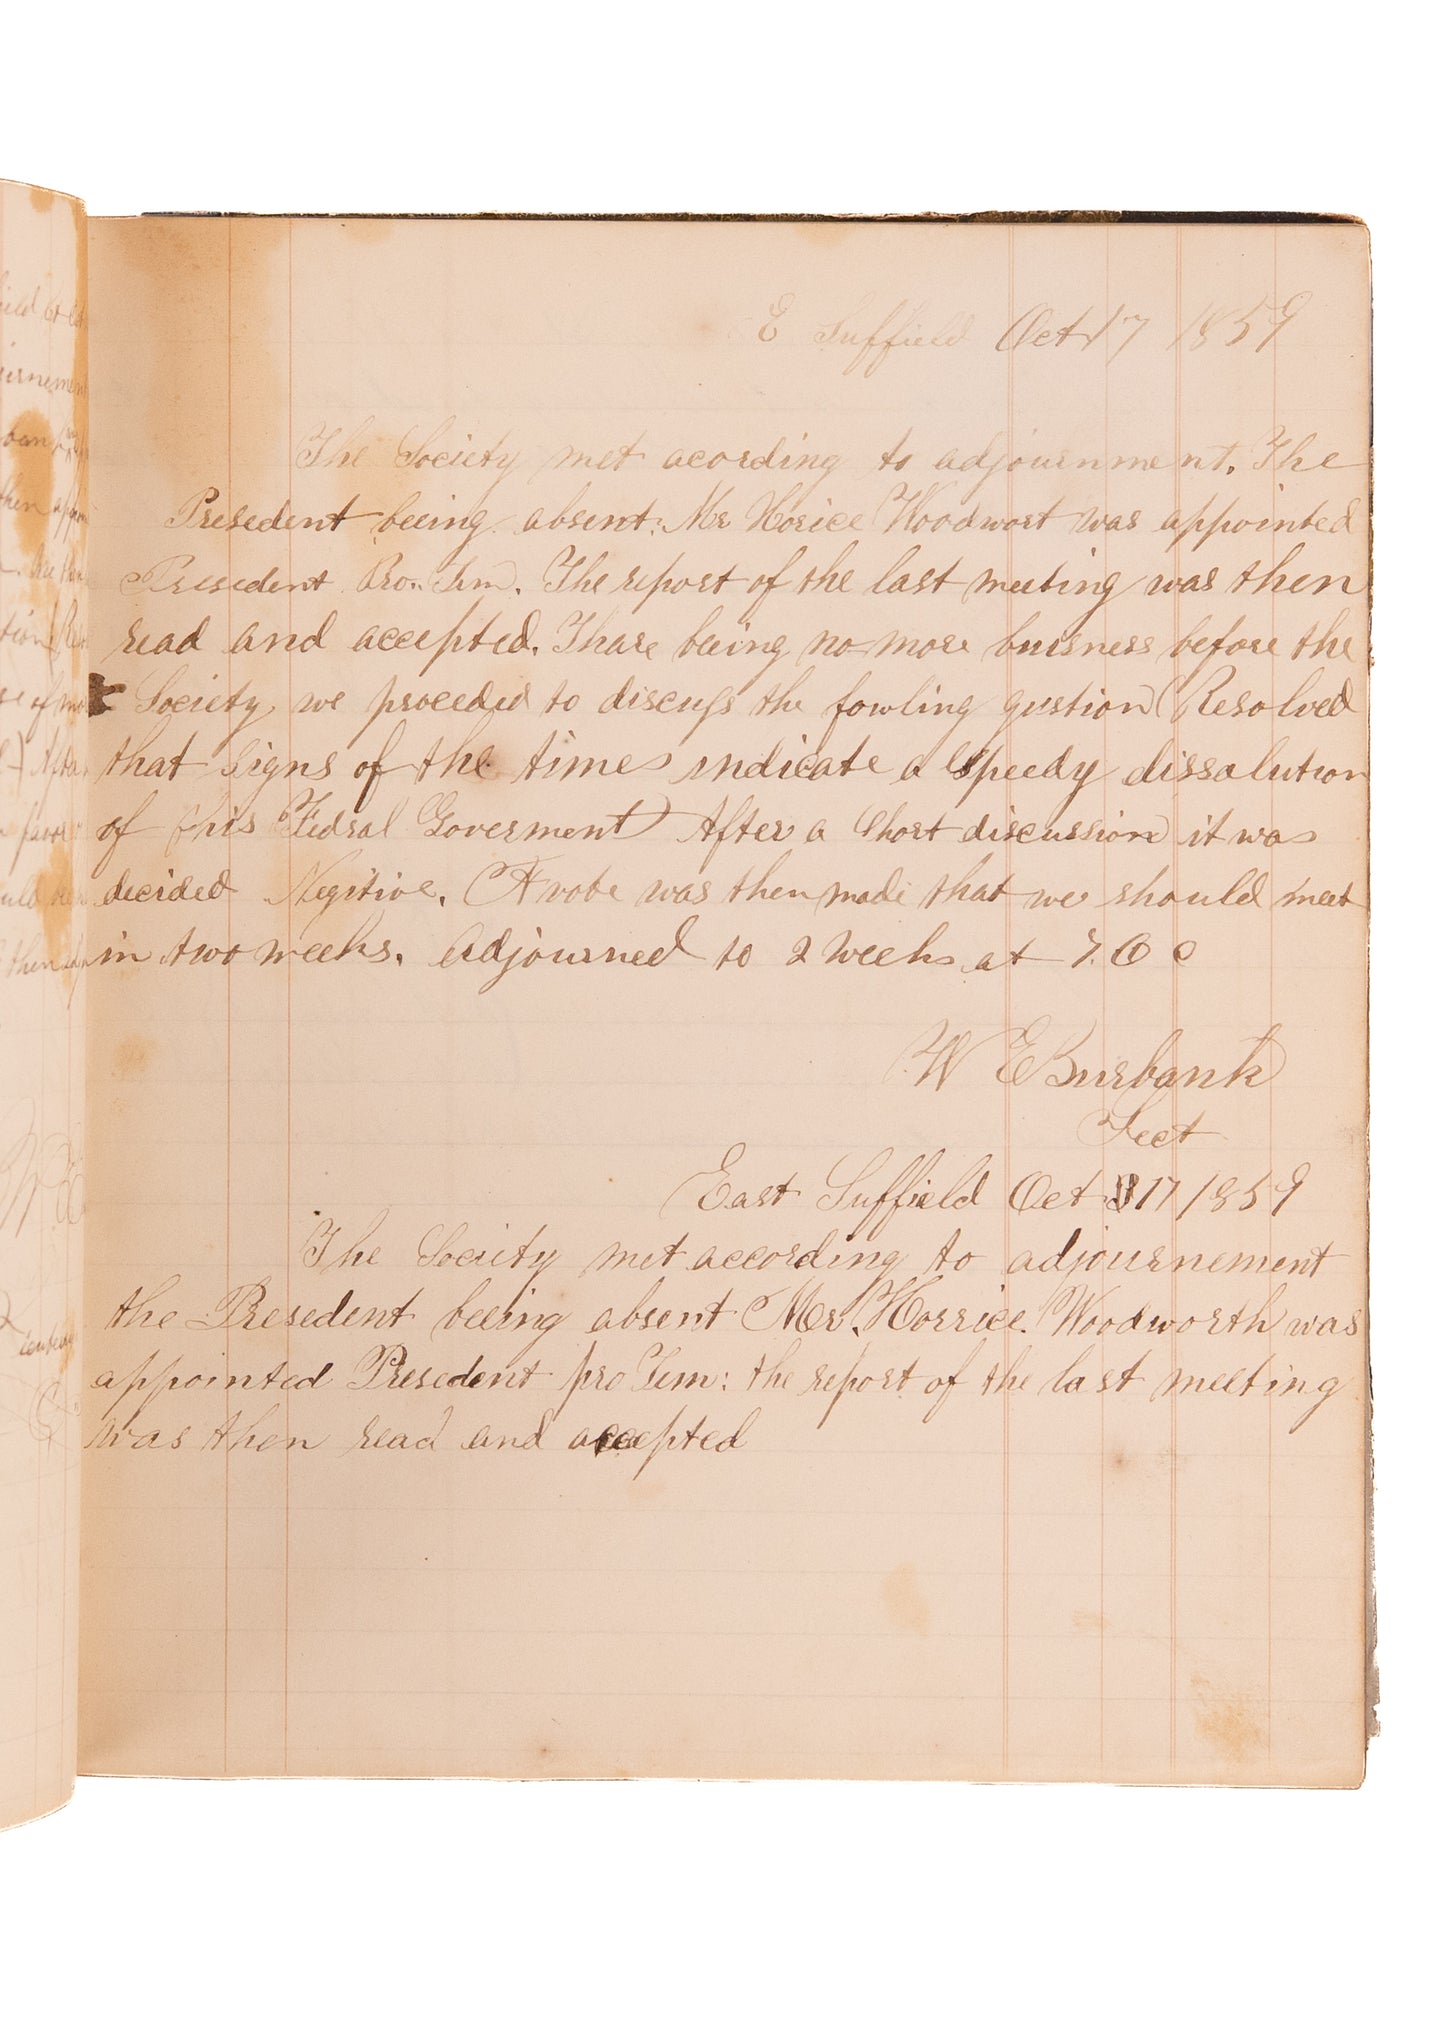 E Suffield Oct 17 1859
The Society met acording to adjournment. The
Presedent being absent. Mr Horice Woodwort was appointed
Presedent Pro.. Tem. The report of the last meeting was then
read and accepted. Thare being no more buisness before the
Society we proceded to discuss the fowling qustion (Resolved
that Signs of the times indicate a Speedy dissalution
of this Fedral Goverment) After a Short discussion it was
decided Negitive. A vote was then made that we should meet
in two weeks. Adjourned to 2 weeks at 7. O c
W E Burbank
Sect
East Suffield Oct 17 1859
The Society met according to adjournement
the Presedent being absent Mr. Horrice Woodworth was
appointed Presedent pro Tem: the report of the last meeting
was then read and accepted